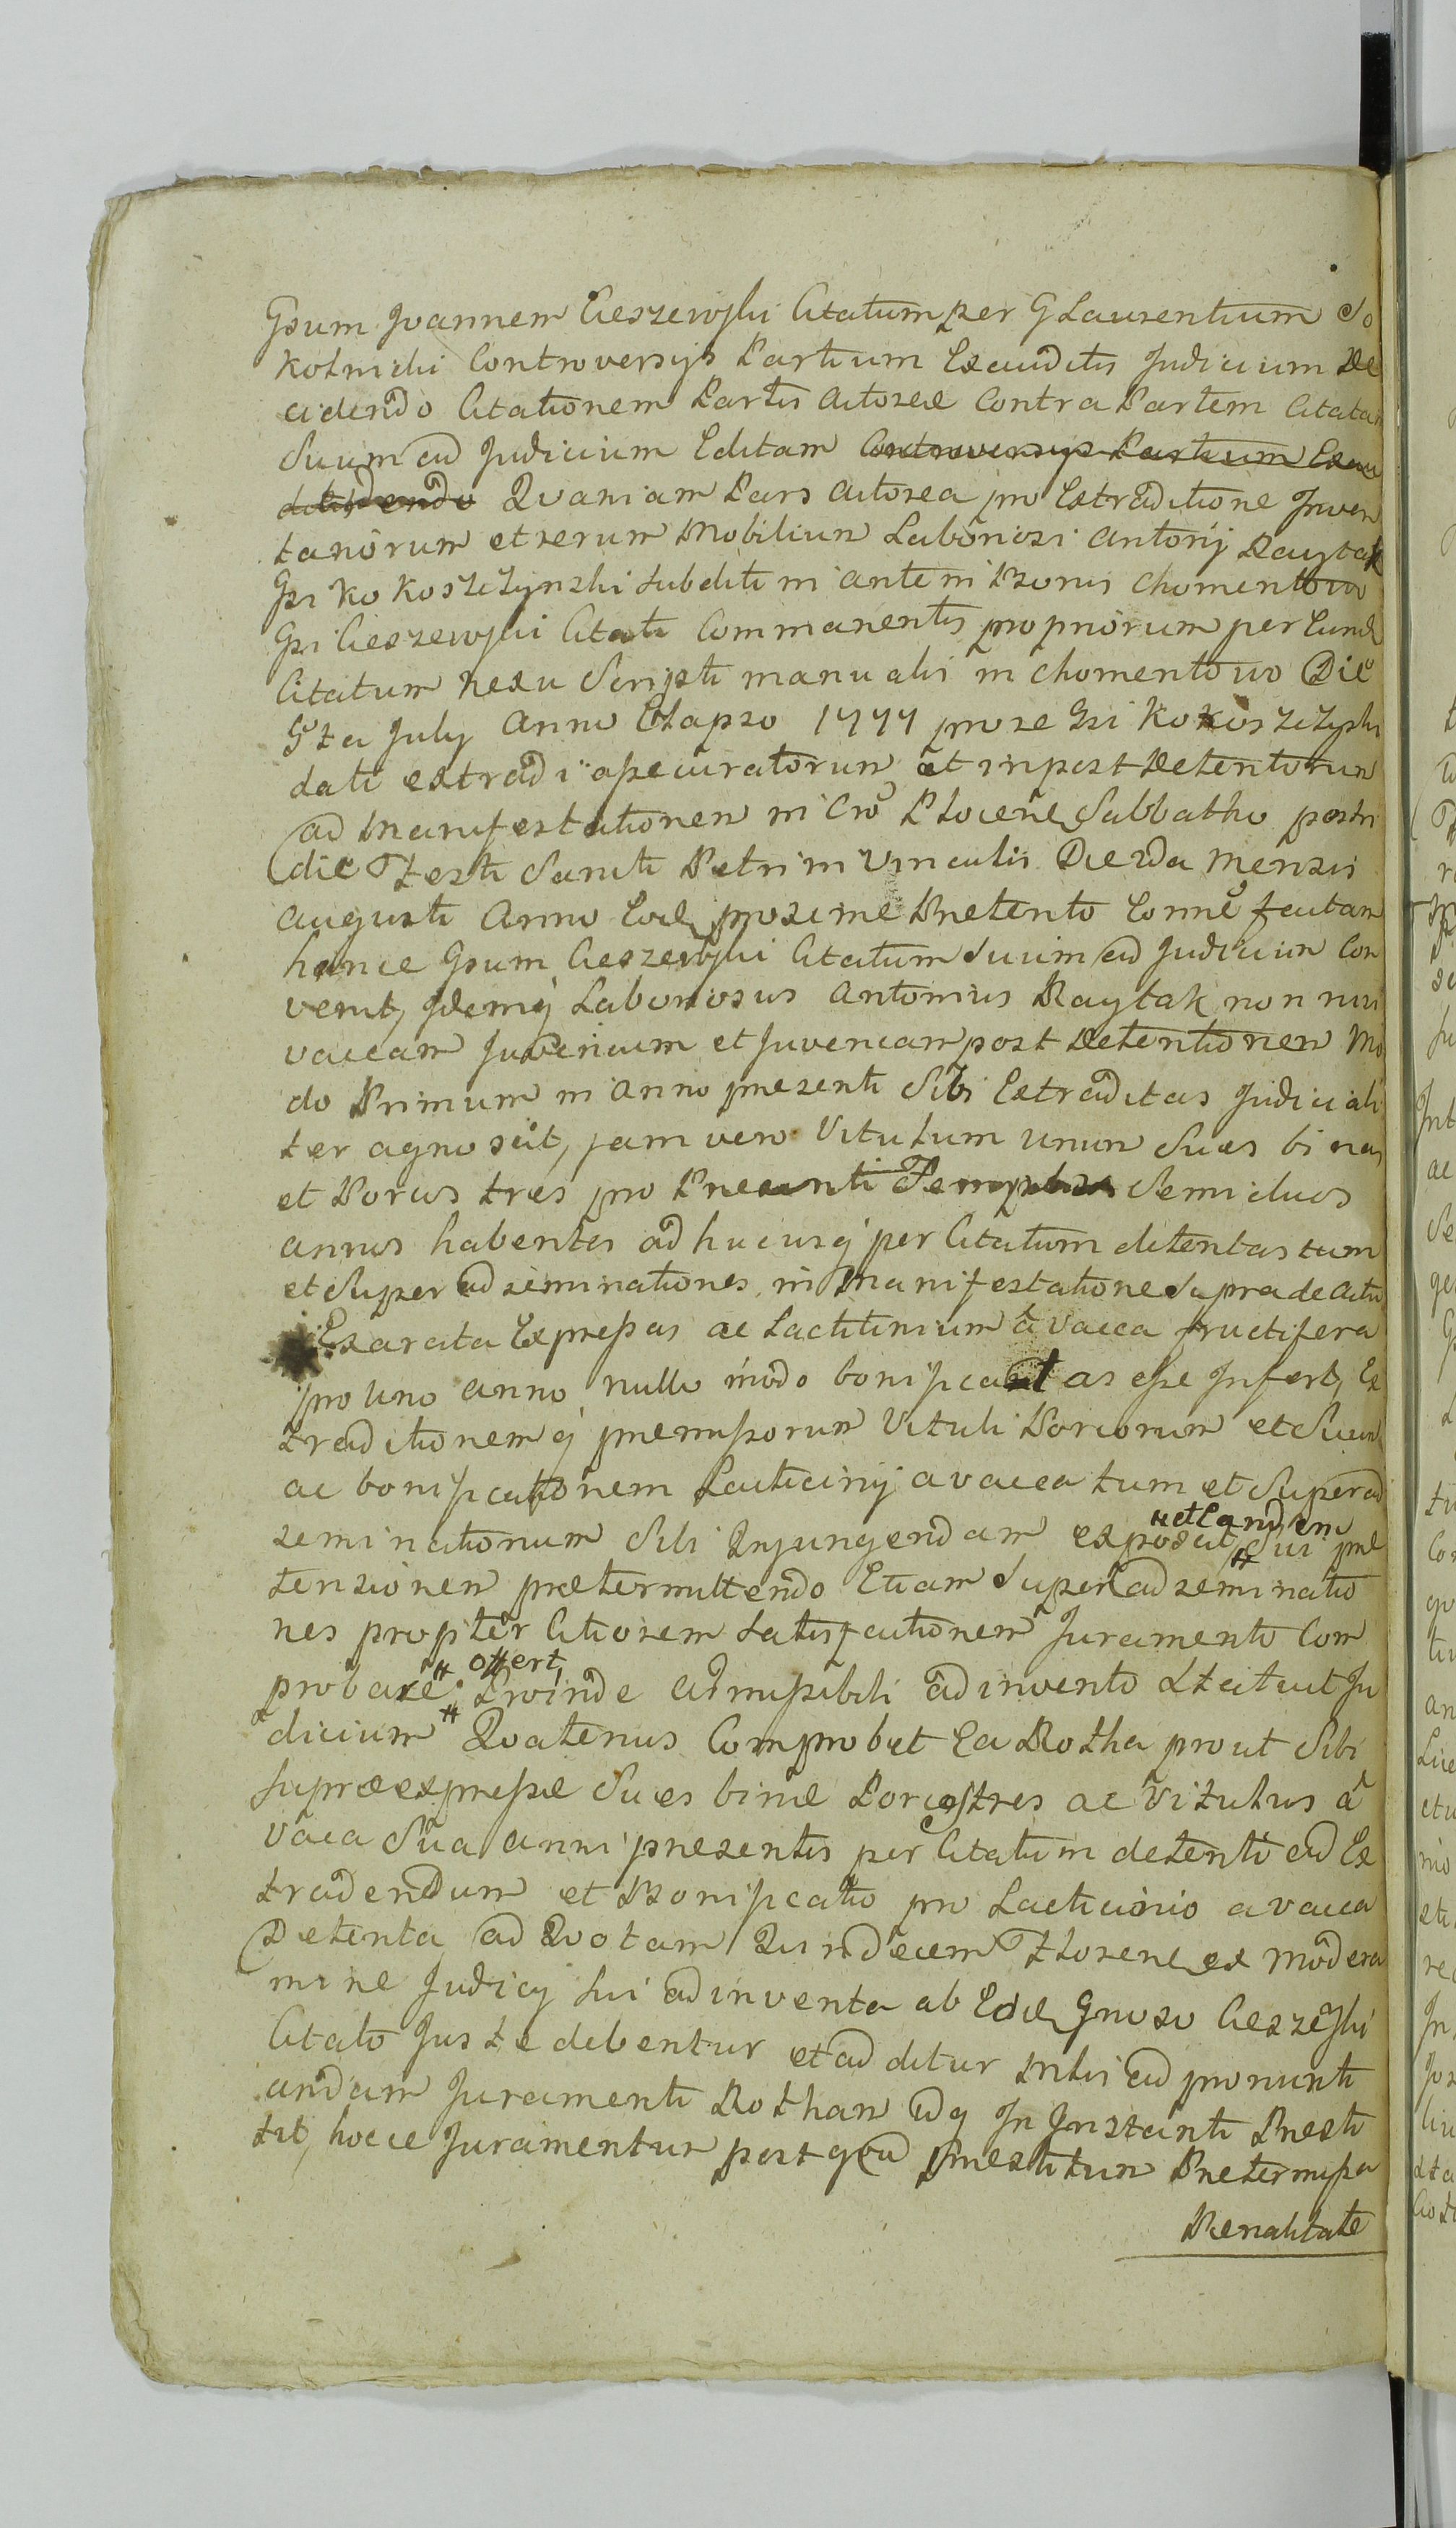 Gsum Joannem Cieszewski Citatum per G Laurentium So
kolnicki Controversys Partium Exauditis Judicium De
cidendo Citationem Partis Actoreæ Contra Partem Citatam
Suum ad Judicium Editam Controversys Partium Exau
ditis dendo Quaniam Pars Actorea pro Extraditione Inven
tariorum et rerum Mobilium Laboriosi Antonij Raytak
Gsi Kokoszczynski Subditi in ante in Bonis Chomentowo
Gsi Cieszewski Citati Commanentis propriorum per Eund
Citatum nexu Scripti manualis in Chomentowo Die
5ta July Anno Elapso 1777 pro re Gsi Kokoszczyski
dati extradi assecuratorum, et in post Detentorum
ad Manifestationem in Cro Plocene Sabbatho postri
die Festi Sancti Petri in Vinculis Die 2da Mensis
Augusti Anno Eod proxime Preterito Conne factam
hance Gsum Cieszewski Citatum Suum ad Judicium Con
venit, Idemq Laboriosus Antonius Raytak non nisi
vaccam Juvencum et Juvencam post Detentionem Mo
do Primum in Anno presenti Sibi Extraditas Judiciali
ter agnoscit, jam vero Vitulum unum Sues binas
et Porcos tres pro Semiduos
annos habentes ad hucusq per Citatum detentas tum
et Super ad seminationes in Manifestatione Supra de Actu
Exarata Expressas ac Lacticinium à vacca fructifera
pro uno anno nullo modo bonificatas esse Infert, Ex
traditionemq premissorum Vituli Porcorum et Suum
ac bonificationem Lacticinij a vacca tum et Super ad
seminationum Sibi Injungendam exposcit # Sui præ
# et tandem
tensionem prætermittendo Etiam Super ad seminatio
nes propter Citiorem Satisfactionem Juramento Com
probare # Proinde admissibili ad invento Statuit Ju
# offert,
dicium # Quatenus Comprobet Ea Rotha prout Sibi
supra expressæ Sues binæ Porci tres ac Vitulus à
vaca Sua anni presentis per Citatum detenti ad Ex
tradendum et Bonificatio pro Lacticinio a vacca
Detenta ad Quotam Quindecem Florene ex modera
mine Judicij Sui adinventa ab Eode Gnroso Cieszeski
Citato Juste debentur et additur Mtis ad pronunti
andam Juramenti Rotham idq In Instanti Presti
tit, hocce Juramentum post qua prestitum Pretermissa
Penalitate